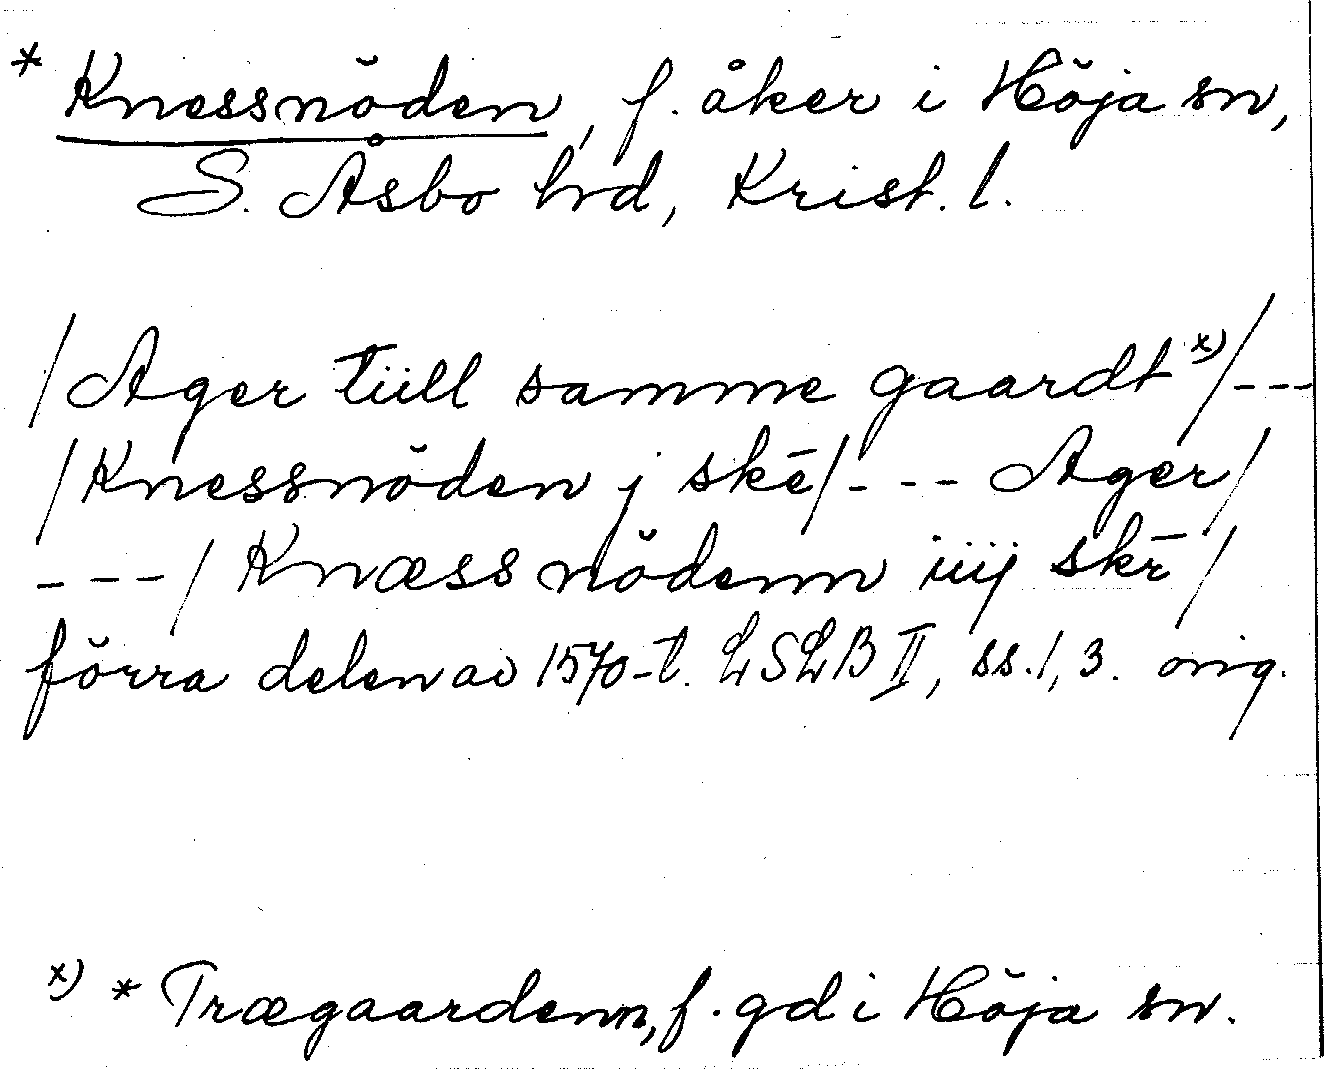 * Knessnöden, f. åker i Höja sn,
S. Åsbo hrd, Krist. l.
/Ager tiill samme gaardt x)/---
/Knessnöden j skē/--- Ager/
---/Knæss nödenn iiij skē/
förra delen av 1570-t. LSLB II, ss. 1, 3. orig.
x) * Trægaardenn, f. gd i Höja sn.